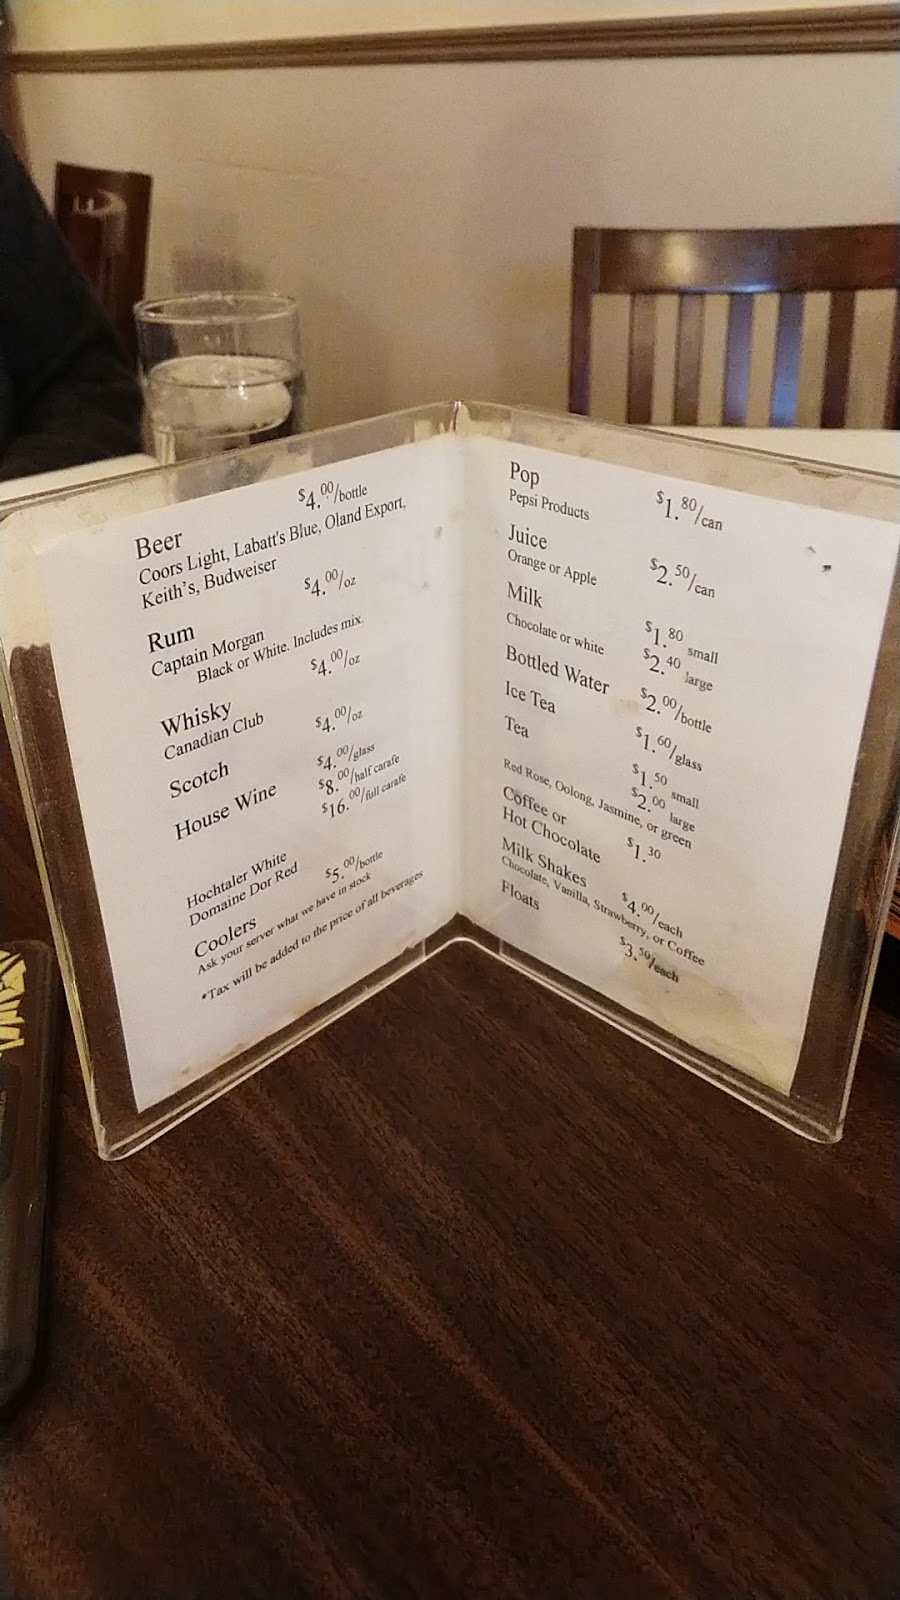 Beer $4.00/bottle
Coors Light, Labatt's Blue, Oland Export,
Keith's, Budweiser
Rum $4.00/oz
Captain Morgan
Black or White. Includes mix.
Whisky $4.00/oz
Canadian Club
Scotch $4.00/oz
House Wine $4.00/glass
$8.00/half carafe
$16.00/full carafe
Hochtaler White
Domaine Dor Red
Coolers $5.00/bottle
Ask your server what we have in stock
*Tax will be added to the price of all beverages
Pop $1.80/can
Pepsi Products
Juice $2.50/can
Orange or Apple
Milk $1.80 small
Chocolate or white $2.40 large
Bottled Water $2.00/bottle
Ice Tea $1.60/glass
Tea $1.50 small
$2.00 large
Red Rose, Oolong, Jasmine, or green
Coffee or
Hot Chocolate $1.30
Milk Shakes $4.00/each
Chocolate, Vanilla, Strawberry, or Coffee
Floats $3.50/each